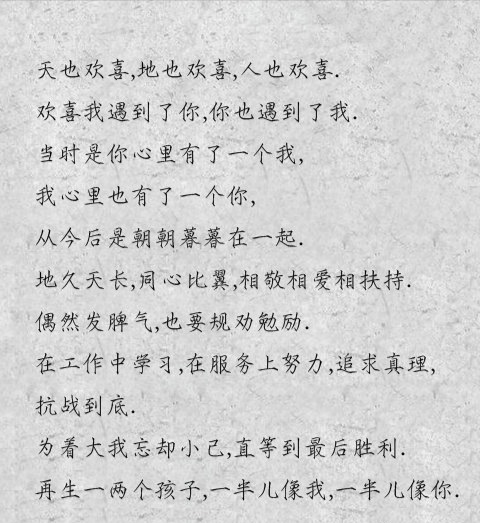 天也欢喜,地也欢喜,人也欢喜.
欢喜我遇到了你,你也遇到了我.
当时是你心里有了一个我,
我心里也有了一个你,
从今后是朝朝暮暮在一起.
地久天长,同心比翼,相敬相爱相扶持.
偶然发脾气,也要规劝勉励.
在工作中学习,在服务上努力,追求真理,
抗战到底.
为着大我忘却小己,直等到最后胜利.
再生一两个孩子,一半儿像我,一半儿像你.